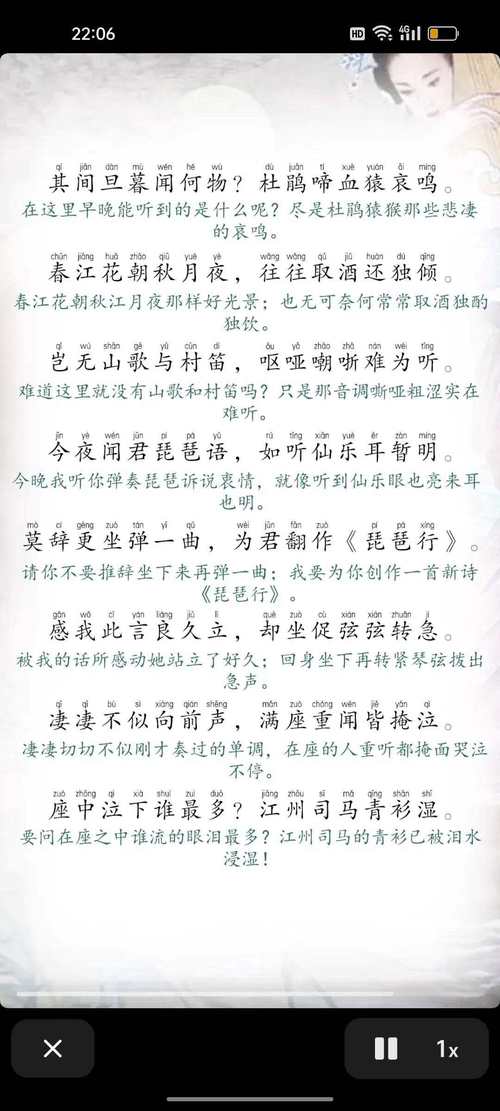 22:06
HD 4G
qí jiān dàn mù wén hé wù dù juān tí xuè yuán āi míng
其间旦暮闻何物？杜鹃啼血猿哀鸣。
在这里早晚能听到的是什么呢？尽是杜鹃猿猴那些悲凄
的哀鸣。
chūn jiāng huā zhāo qiū yuè yè wǎng wǎng qǔ jiǔ huán dú qīng
春江花朝秋月夜，往往取酒还独倾。
春江花朝秋江月夜那样好光景；也无可奈何常常取酒独酌
独饮。
qǐ wú shān gē yǔ cūn dí ǒu yǎ zhāo zhā nán wéi tīng
岂无山歌与村笛，呕哑嘲哳难为听。
难道这里就没有山歌和村笛吗？只是那音调嘶哑粗涩实在
难听。
jīn yè wén jūn pí pá yǔ rú tīng xiān yuè ěr zàn míng
今夜闻君琵琶语，如听仙乐耳暂明。
今晚我听你弹奏琵琶诉说衷情，就像听到仙乐眼也亮来耳
也明。
mò cí gèng zuò tán yī qǔ wèi jūn fān zuò pí pá xíng
莫辞更坐弹一曲，为君翻作《琵琶行》。
请你不要推辞坐下来再弹一曲；我要为你创作一首新诗
《琵琶行》。
gǎn wǒ cǐ yán liáng jiǔ lì què zuò cù xián xián zhuǎn jí
感我此言良久立，却坐促弦弦转急。
被我的话所感动她站立了好久；回身坐下再转紧琴弦拨出
急声。
qī qī bù sì xiàng qián shēng mǎn zuò chóng wén jiē yǎn qì
凄凄不似向前声，满座重闻皆掩泣。
凄凄切切不似刚才奏过的单调，在座的人重听都掩面哭泣
不停。
zuò zhōng qì xià shuí zuì duō jiāng zhōu sī mǎ qīng shān shī
座中泣下谁最多？江州司马青衫湿。
要问在座之中谁流的眼泪最多？江州司马的青衫已被泪水
浸湿！
1x